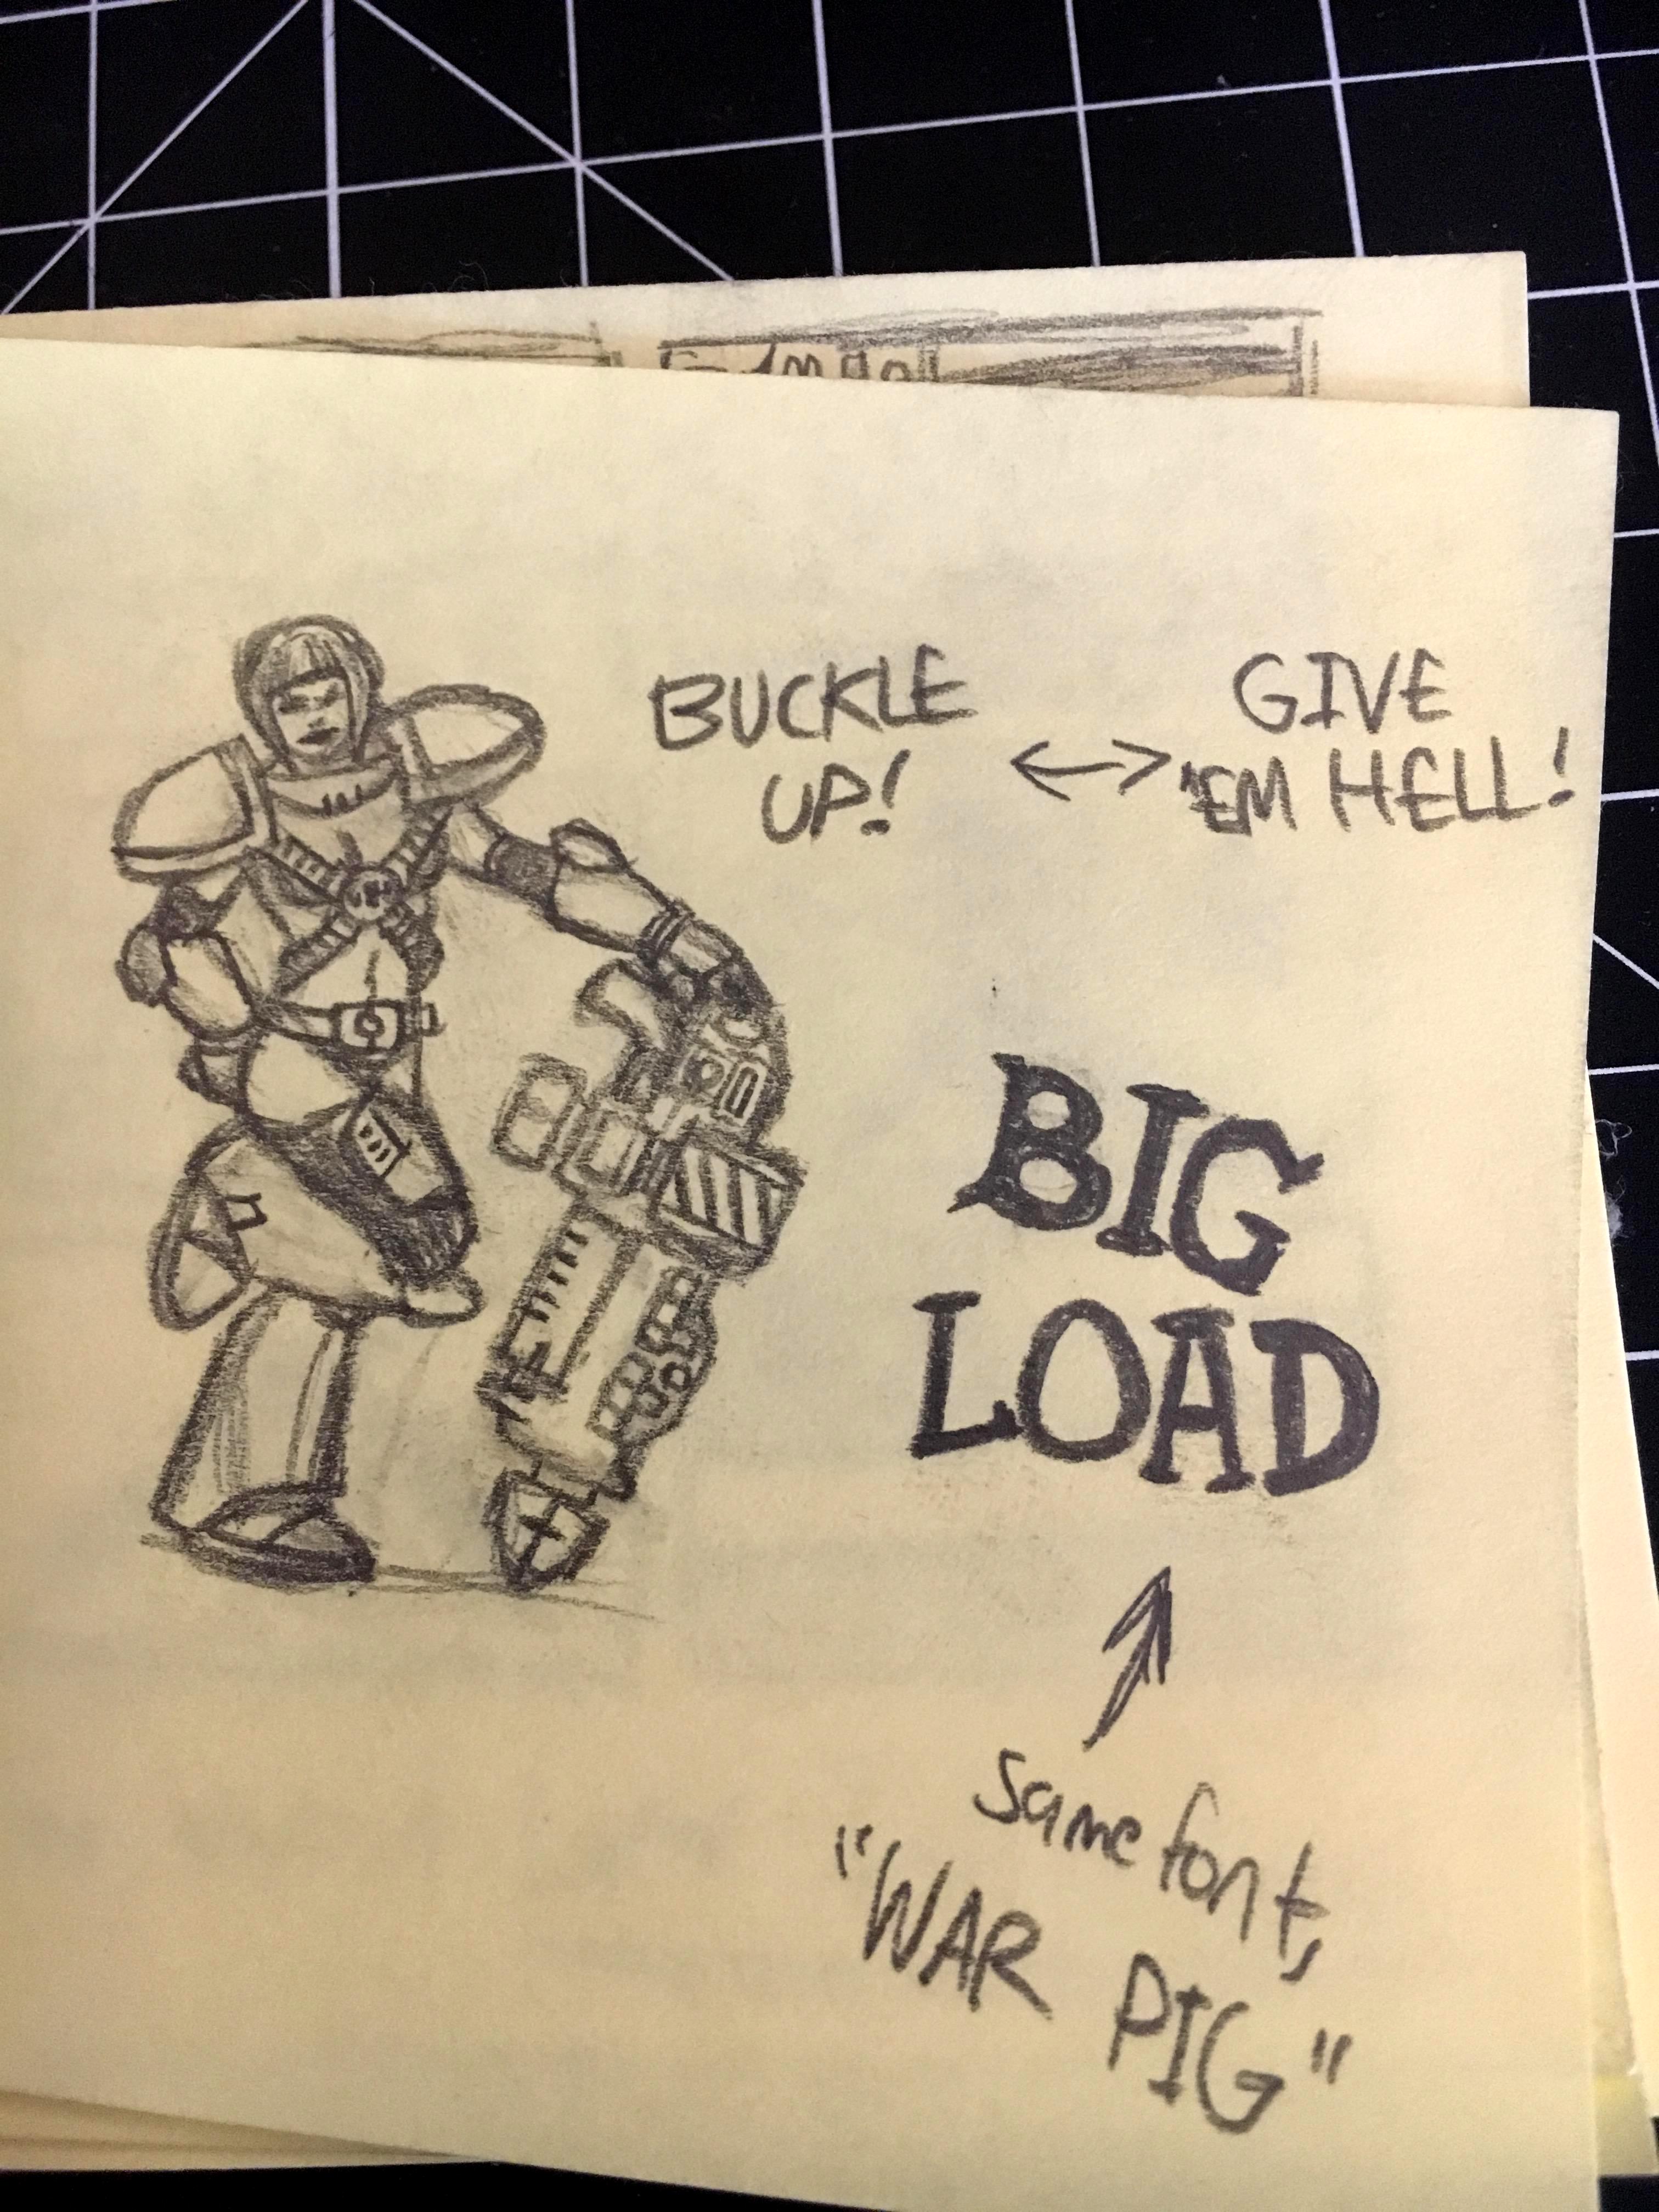 BUCKLE
UP!
GIVE
"EM HELL!
BIG
LOAD
same font,
"WAR PIG"